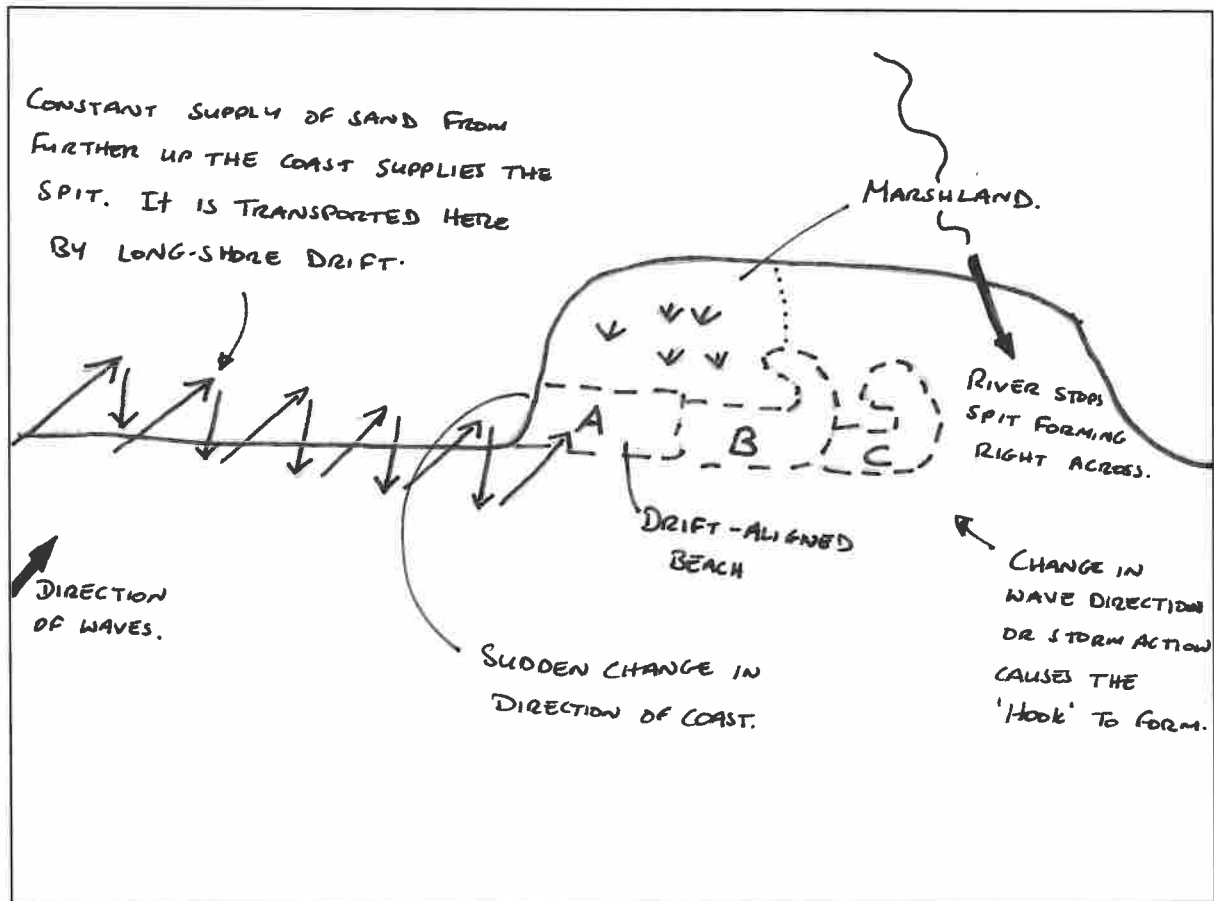 CONSTANT SUPPLY OF SAND FROM
FURTHER UP THE COAST SUPPLIES THE
SPIT. It IS TRANSPORTED HERE
BY LONG-SHORE DRIFT.
MARSHLAND.
A
B
C
RIVER STOPS
SPIT FORMING
RIGHT ACROSS.
DRIFT-ALIGNED
BEACH
DIRECTION
OF WAVES.
SUDDEN CHANGE IN
DIRECTION OF COAST.
CHANGE IN
WAVE DIRECTION
OR STORM ACTION
CAUSES THE
'HOOK' TO FORM.